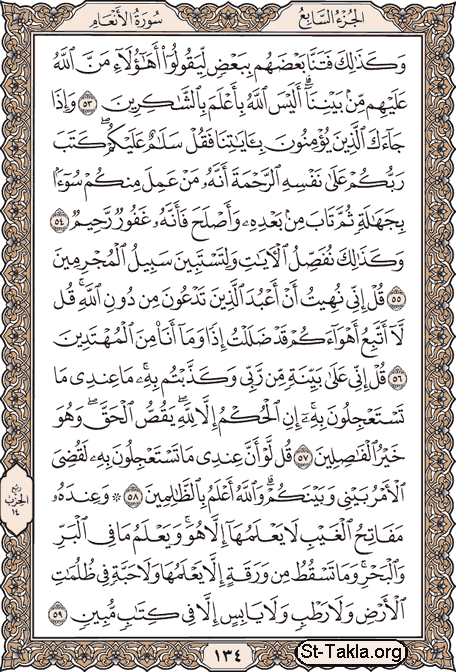 الجزء السابع
سورة الأنعام
وَكَذَٰلِكَ فَتَنَّا بَعْضَهُم بِبَعْضٍ لِّيَقُولُوٓا۟ أَهَٰٓؤُلَآءِ مَنَّ ٱللَّهُ
عَلَيْهِم مِّنۢ بَيْنِنَآ ۗ أَلَيْسَ ٱللَّهُ بِأَعْلَمَ بِٱلشَّٰكِرِينَ ٥٣ وَإِذَا
جَآءَكَ ٱلَّذِينَ يُؤْمِنُونَ بِـَٔايَٰتِنَا فَقُلْ سَلَٰمٌ عَلَيْكُمْ ۖ كَتَبَ
رَبُّكُمْ عَلَىٰ نَفْسِهِ ٱلرَّحْمَةَ ۖ أَنَّهُۥ مَنْ عَمِلَ مِنكُمْ سُوٓءًۢا
بِجَهَٰلَةٍ ثُمَّ تَابَ مِنۢ بَعْدِهِۦ وَأَصْلَحَ فَأَنَّهُۥ غَفُورٌ رَّحِيمٌ ٥٤
وَكَذَٰلِكَ نُفَصِّلُ ٱلْـَٔايَٰتِ وَلِتَسْتَبِينَ سَبِيلُ ٱلْمُجْرِمِينَ
٥٥ قُلْ إِنِّى نُهِيتُ أَنْ أَعْبُدَ ٱلَّذِينَ تَدْعُونَ مِن دُونِ ٱللَّهِ ۚ قُل
لَّآ أَتَّبِعُ أَهْوَآءَكُمْ ۙ قَدْ ضَلَلْتُ إِذًا وَمَآ أَنَا۠ مِنَ ٱلْمُهْتَدِينَ
٥٦ قُلْ إِنِّى عَلَىٰ بَيِّنَةٍ مِّن رَّبِّى وَكَذَّبْتُم بِهِۦ ۚ مَا عِندِى مَا
تَسْتَعْجِلُونَ بِهِۦٓ ۚ إِنِ ٱلْحُكْمُ إِلَّا لِلَّهِ ۖ يَقُصُّ ٱلْحَقَّ ۖ وَهُوَ
خَيْرُ ٱلْفَٰصِلِينَ ٥٧ قُل لَّوْ أَنَّ عِندِى مَا تَسْتَعْجِلُونَ بِهِۦ لَقُضِىَ
ٱلْأَمْرُ بَيْنِى وَبَيْنَكُمْ ۗ وَٱللَّهُ أَعْلَمُ بِٱلظَّٰلِمِينَ ٥٨ ۞ وَعِندَهُۥ
مَفَاتِحُ ٱلْغَيْبِ لَا يَعْلَمُهَآ إِلَّا هُوَ ۚ وَيَعْلَمُ مَا فِى ٱلْبَرِّ
وَٱلْبَحْرِ ۚ وَمَا تَسْقُطُ مِن وَرَقَةٍ إِلَّا يَعْلَمُهَا وَلَا حَبَّةٍ فِى ظُلُمَٰتِ
ٱلْأَرْضِ وَلَا رَطْبٍ وَلَا يَابِسٍ إِلَّا فِى كِتَٰبٍ مُّبِينٍ ٥٩
ربع
الحزب
١٤
١٣٤
St-Takla.org